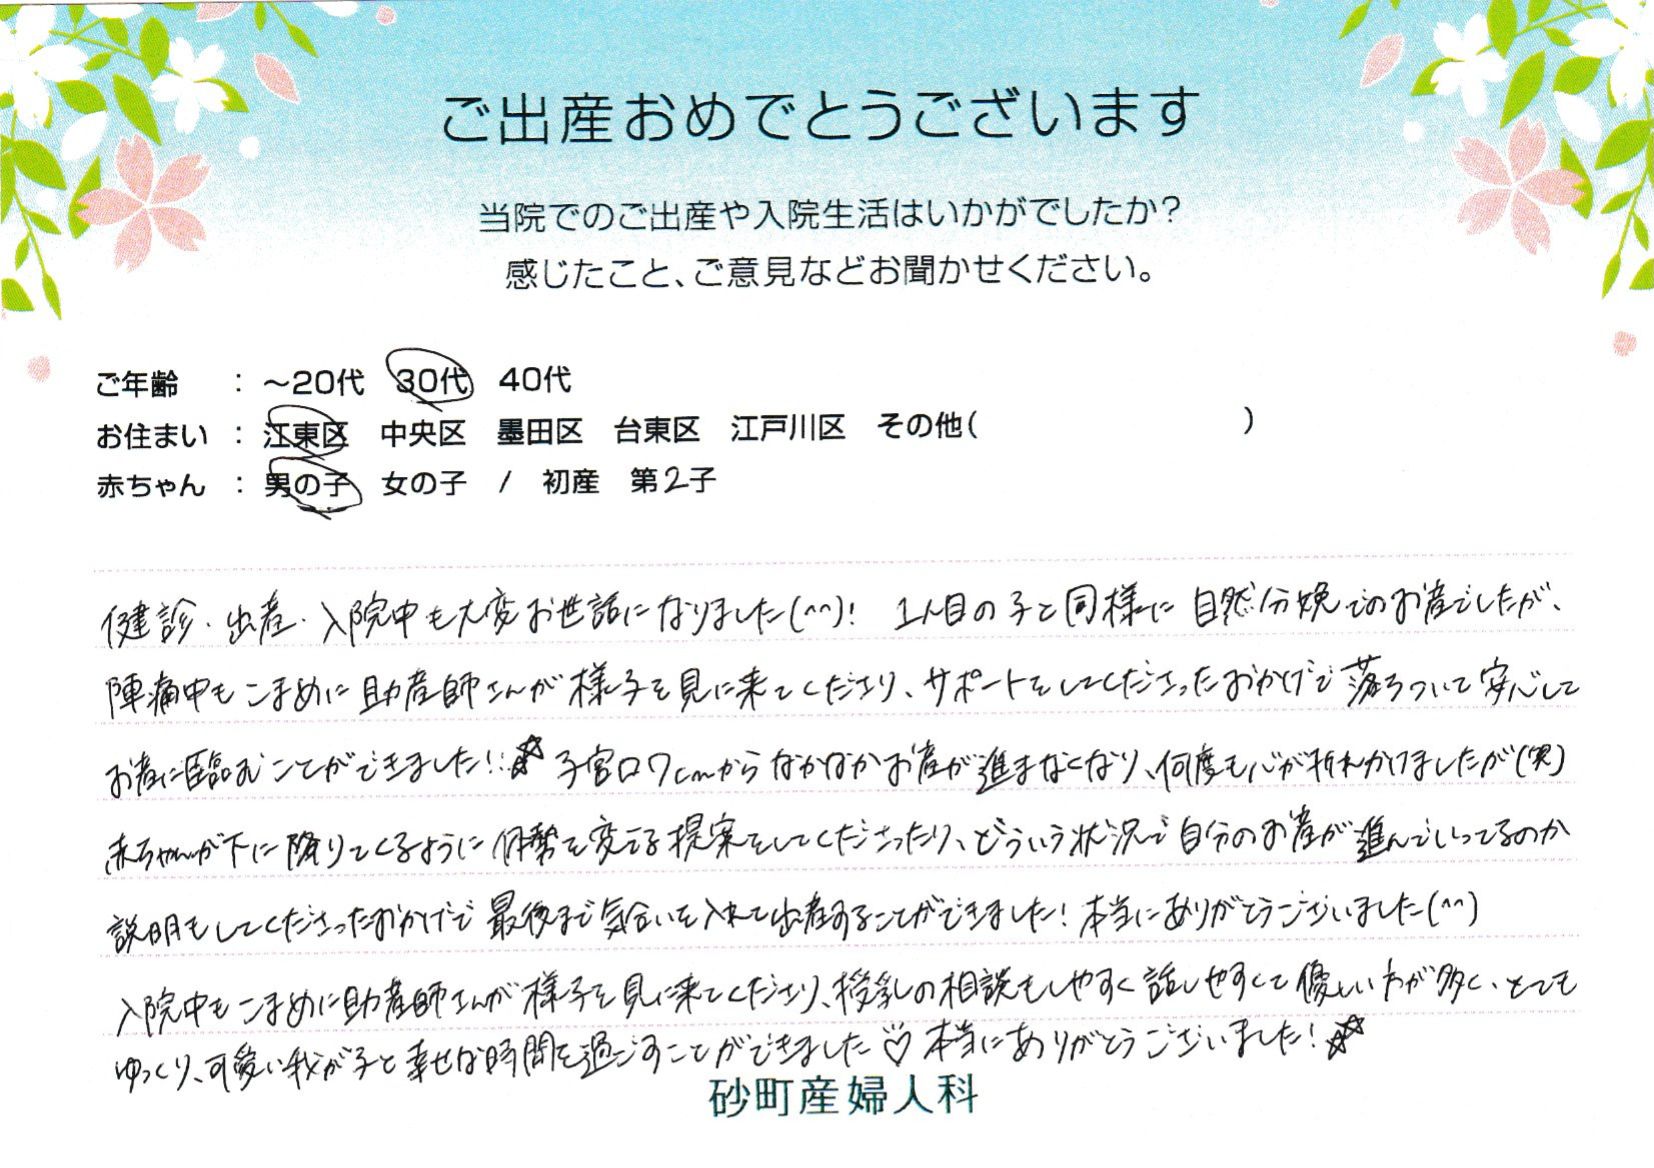 ご出産おめでとうございます
当院でのご出産や入院生活はいかがでしたか?
感じたこと、ご意見などお聞かせください。
ご年齢 : ～20代 30代 40代
お住まい : 江東区 中央区 墨田区 台東区 江戸川区 その他( )
赤ちゃん : 男の子 女の子 / 初産 第2子
健診・出産・入院中も大変お世話になりました(^^)! 1人目の子と同様に自然分娩でのお産でしたが、
陣痛中もこまめに助産師さんが様子を見に来てくださり、サポートをしてくださったおかげで落ちついて安心して
お産に臨むことができました!!☆ 子宮口7cmからなかなかお産が進まなくなり、何度も心が折れかけましたが(笑)
赤ちゃんが下に降りてくるように体勢を変える提案をしてくださったり、どういう状況で自分のお産が進んでいってるのか
説明もしてくださったおかげで最後まで気合いを入れて出産することができました! 本当にありがとうございました(^^)
入院中もこまめに助産師さんが様子を見に来てくださり、授乳の相談もしやすく話しやすくて優しい方が多く、とても
ゆっくり、可愛い我が子と幸せな時間を過ごすことができました♡ 本当にありがとうございました!☆
砂町産婦人科